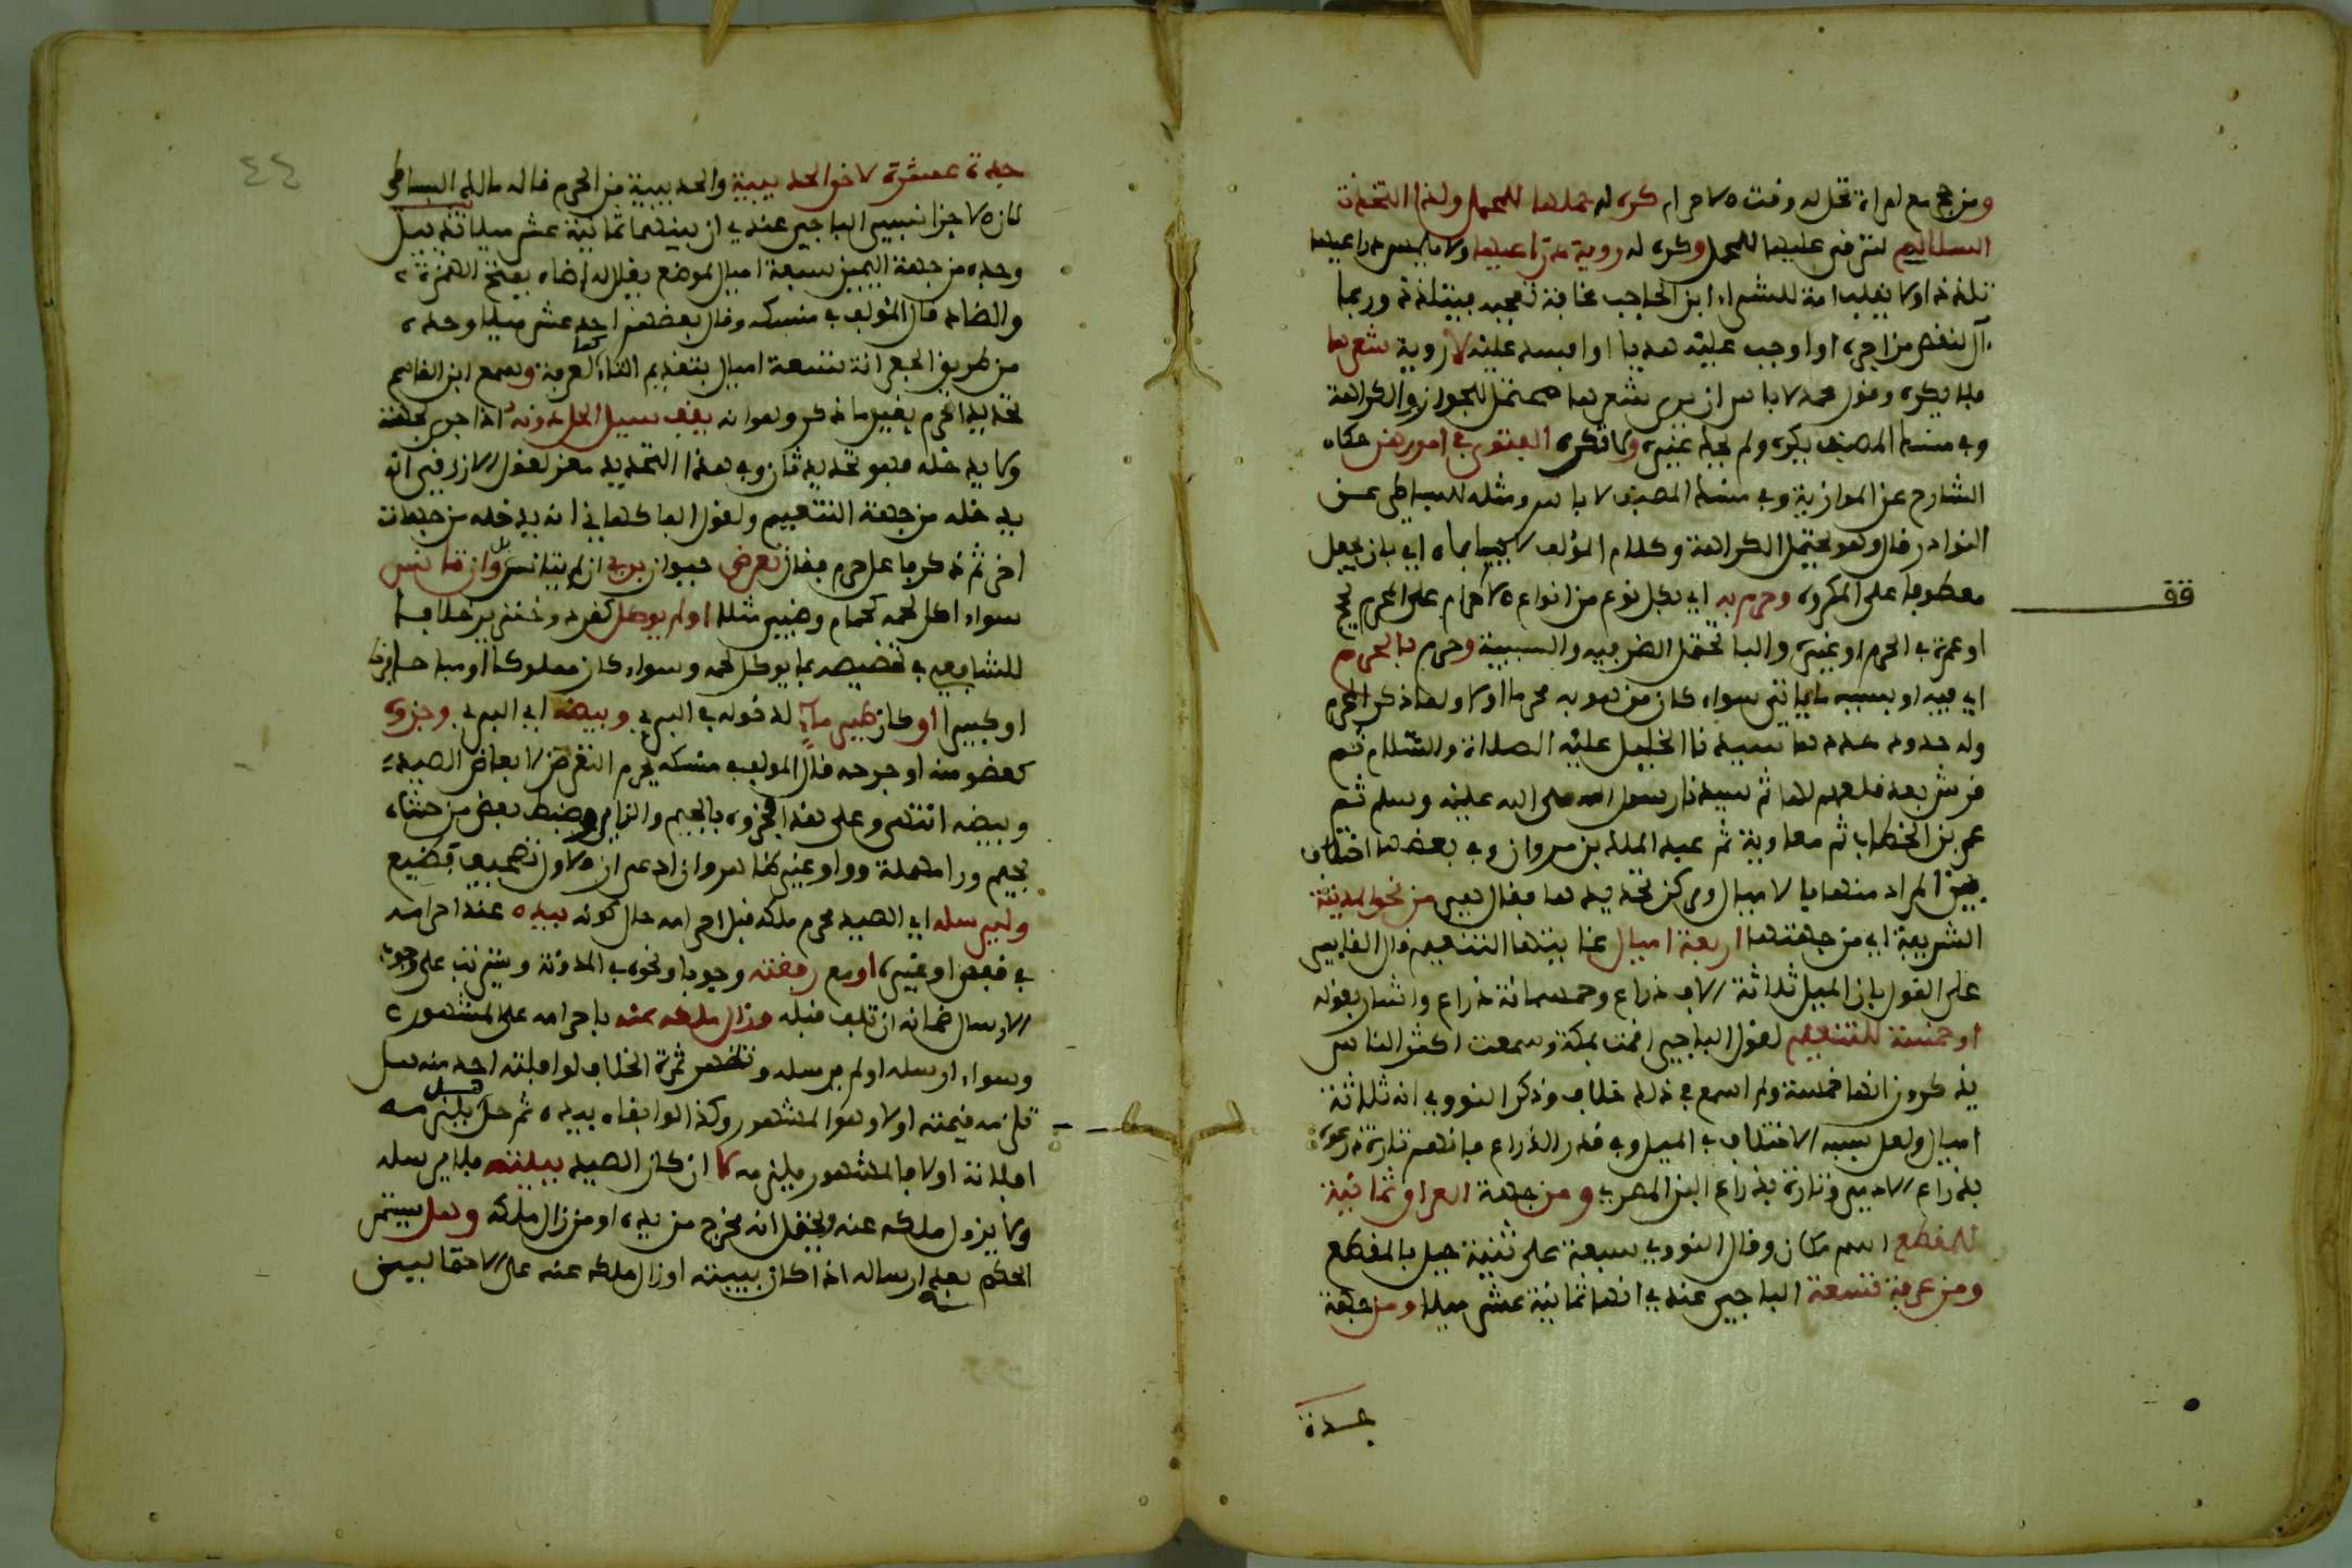 ومن حج مع امراة تحل له وقت الاحرام كره له حملها للمحمل ولذا اتخذت
السلالم لترقى عليها للمحمل وكره له روية ذراعيها ولا بلمس ذراعيها
تلذذ اولا يقلب امة للشراء ابن الحاجب مخافة تعجبه فيتلذذ وربما
آل لنقص من اجره او اوجب عليه هديا او افسد عليه لا روية شعرها
فلا يكره وقول محمد لا باس ان يرى شعرها محتمل للجواز والكراهة
وفي منسك المصنف يكره ولم يحك غيره ولا تكره الفتوى في امورهن حكاه
الشارح عن الموازية وفي منسك المصنف لا باس ومثله للبساطي عن
النوادر قال وهو محتمل الكراهة وكلام المؤلف لا يحيماه اي بان يجعل
معطوفا على المكروه وحرم به اي بكل نوع من انواع الاحرام على المحرم بحج
او عمرة في الحرم او غيره والبا تحتمل الضرفيه والسببية وحرم بالحرم
اي فيه او بسببه ما ياتي سواء كان من هو به محرما اولا ولما ذكر الحرم
وله حدود حددها سيدنا الخليل عليه الصلاة والسلام ثم
قريش بعد قلعهم لها ثم سيدنا رسول الله صلى الله عليه وسلم ثم
عمر بن الخطاب ثم معاوية ثم عبد الملك بن مروان وفي بعضها اختلاف
بين المراد منها يا لاميال ومركز تحديدها فقال فهي من نحو المدينة
الشريفة اي من جهتها اربعة اميال مما بينها التنعيم قال الفاسي
على القول بان الميل ثلاثة الاف ذراع وخمسمائة ذراع واشار بقوله
او خمسة للتنعيم لقول الباجي اقمت بمكة وسمعت اكثر الناس
يذكرون انها خمسة ولم اسمع في ذلك خلاف وذكر النووي انه ثلاثة
اميال ولعل سببه الاختلاف في الميل وفي قدر الذراع فانهم تارة ذرعوه
بذراع الادمي وتارة بذراع البز المصري ومن جهة العراق ثمانية
للمقطع اسم مكان وقال النووي سبعة على ثنية جبل بالمقطع
ومن عرفة تسعة الباجي عندي انها ثمانية عشر ميلا ومن جهة
جدة
قف
٤٤
جدة عشرة لاخر الحديبية والحديبية من الحرم قاله مالك البساطي
كان الاجزا نسبير الباجي عندي ان بينهما ثمانية عشر ميلا تنبيه
وحده من جهة اليمين سبعة اميال لموضع يقال له اضاه بفتح الهمزة
والضاد قال المؤلف في منسكه وقال بعضهم احد عشر ميلا وحده
من طريق الجعرانة تسعة اميال بتقديم التاء كما لعرفة وسمع ابن القاسم
تحديد الحرم بغير ما ذكر وهو انه يقف سيل الحل دونه اذا جرى لجهته
ولا يدخله فهو تحديد ثان وفي هذا التحديد معز لقول الازرقي انه
يدخله من جهة التنعيم ولقول الفاكهاني انه يدخله من جهات
اخر ثم ذكر ما على حرم فقال تعرض حيوان بري ان لم يتانس بل وان تانس
سواء اكل لحمه كحمام وضبي مثلا او لم يوكل كقرد وخنزير خلافا
للشافعي في تخصيصه بما يوكل لحمه وسواء كان مملوكا او مباحا فرخا
او كبيرا او كان طير ماء لدخوله في البري وبيضه اي البري وجزوه
كعضو منه او جرحه قال المولف في منسكه يحرم التعرض لابعاض الصيد
وبيضه انتهى وعلى هذا فجزوه بالجيم والزاي وضبط بعض من حشاه
بجيم ورا مهملة وواو غير هنا مروان ادعى ان الاول تصحيف فضيع
وليرسله اي الصيد محرم ملكه قبل احرامه حال كونه بيده عند احرامه
في قفص او غيره او مع رفقته وجوبا ونحوه في المدونة ويترتب على وجوب
الارسال ضمانه ان تلف قبله وزال ملكه عنه باحرامه على المشهور
وسواء ارسله او لم يرسله وتظهر ثمرة الخلاف لو افلته احد منه هل
تلزمه قيمته اولا وهو المشهور وكذا لو ابقاه بيده ثم حل هل يلزمه
افلاته اولا فالمشهور يلزمه لا ان كان الصيد ببيته فلا يرسله
ولا يزول ملكه عنه ويحتمل انه مخرج من بيده او من زال ملكه وهل يستمر
الحكم بعد ارساله اذا كان ببيته او زال ملكه عنه على الاحتمالين